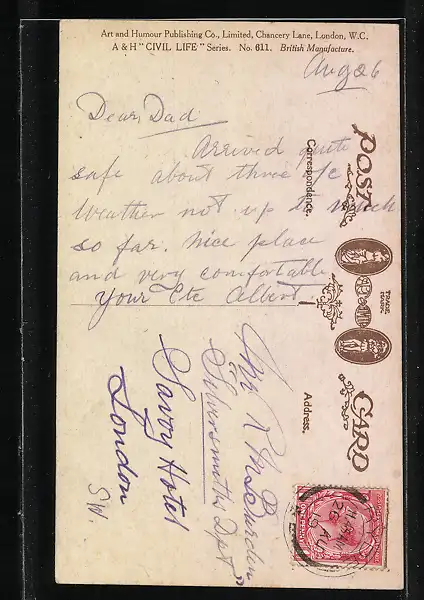 Art and Humour Publishing Co., Limited, Chancery Lane, London, W.C.
A & H "CIVIL LIFE" Series. No. 611. British Manufacture.
Aug 26
Dear Dad
Arrived quite
safe about three
Weather not up to much
so far. Nice place
and very comfortable
Your Etc Albert
POST CARD
Correspondence.
TRADE MARK
Address.
Mr R
Silversmiths Dpt
Savoy Hotel
London
S.W.